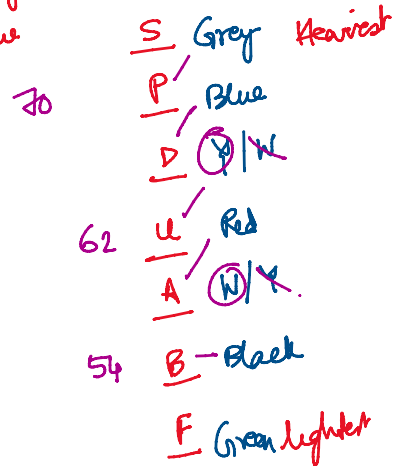 S Grey Heaviest
70 P Blue
D Y/W
62 U Red
A W/Y
54 B - Black
F Green lightest